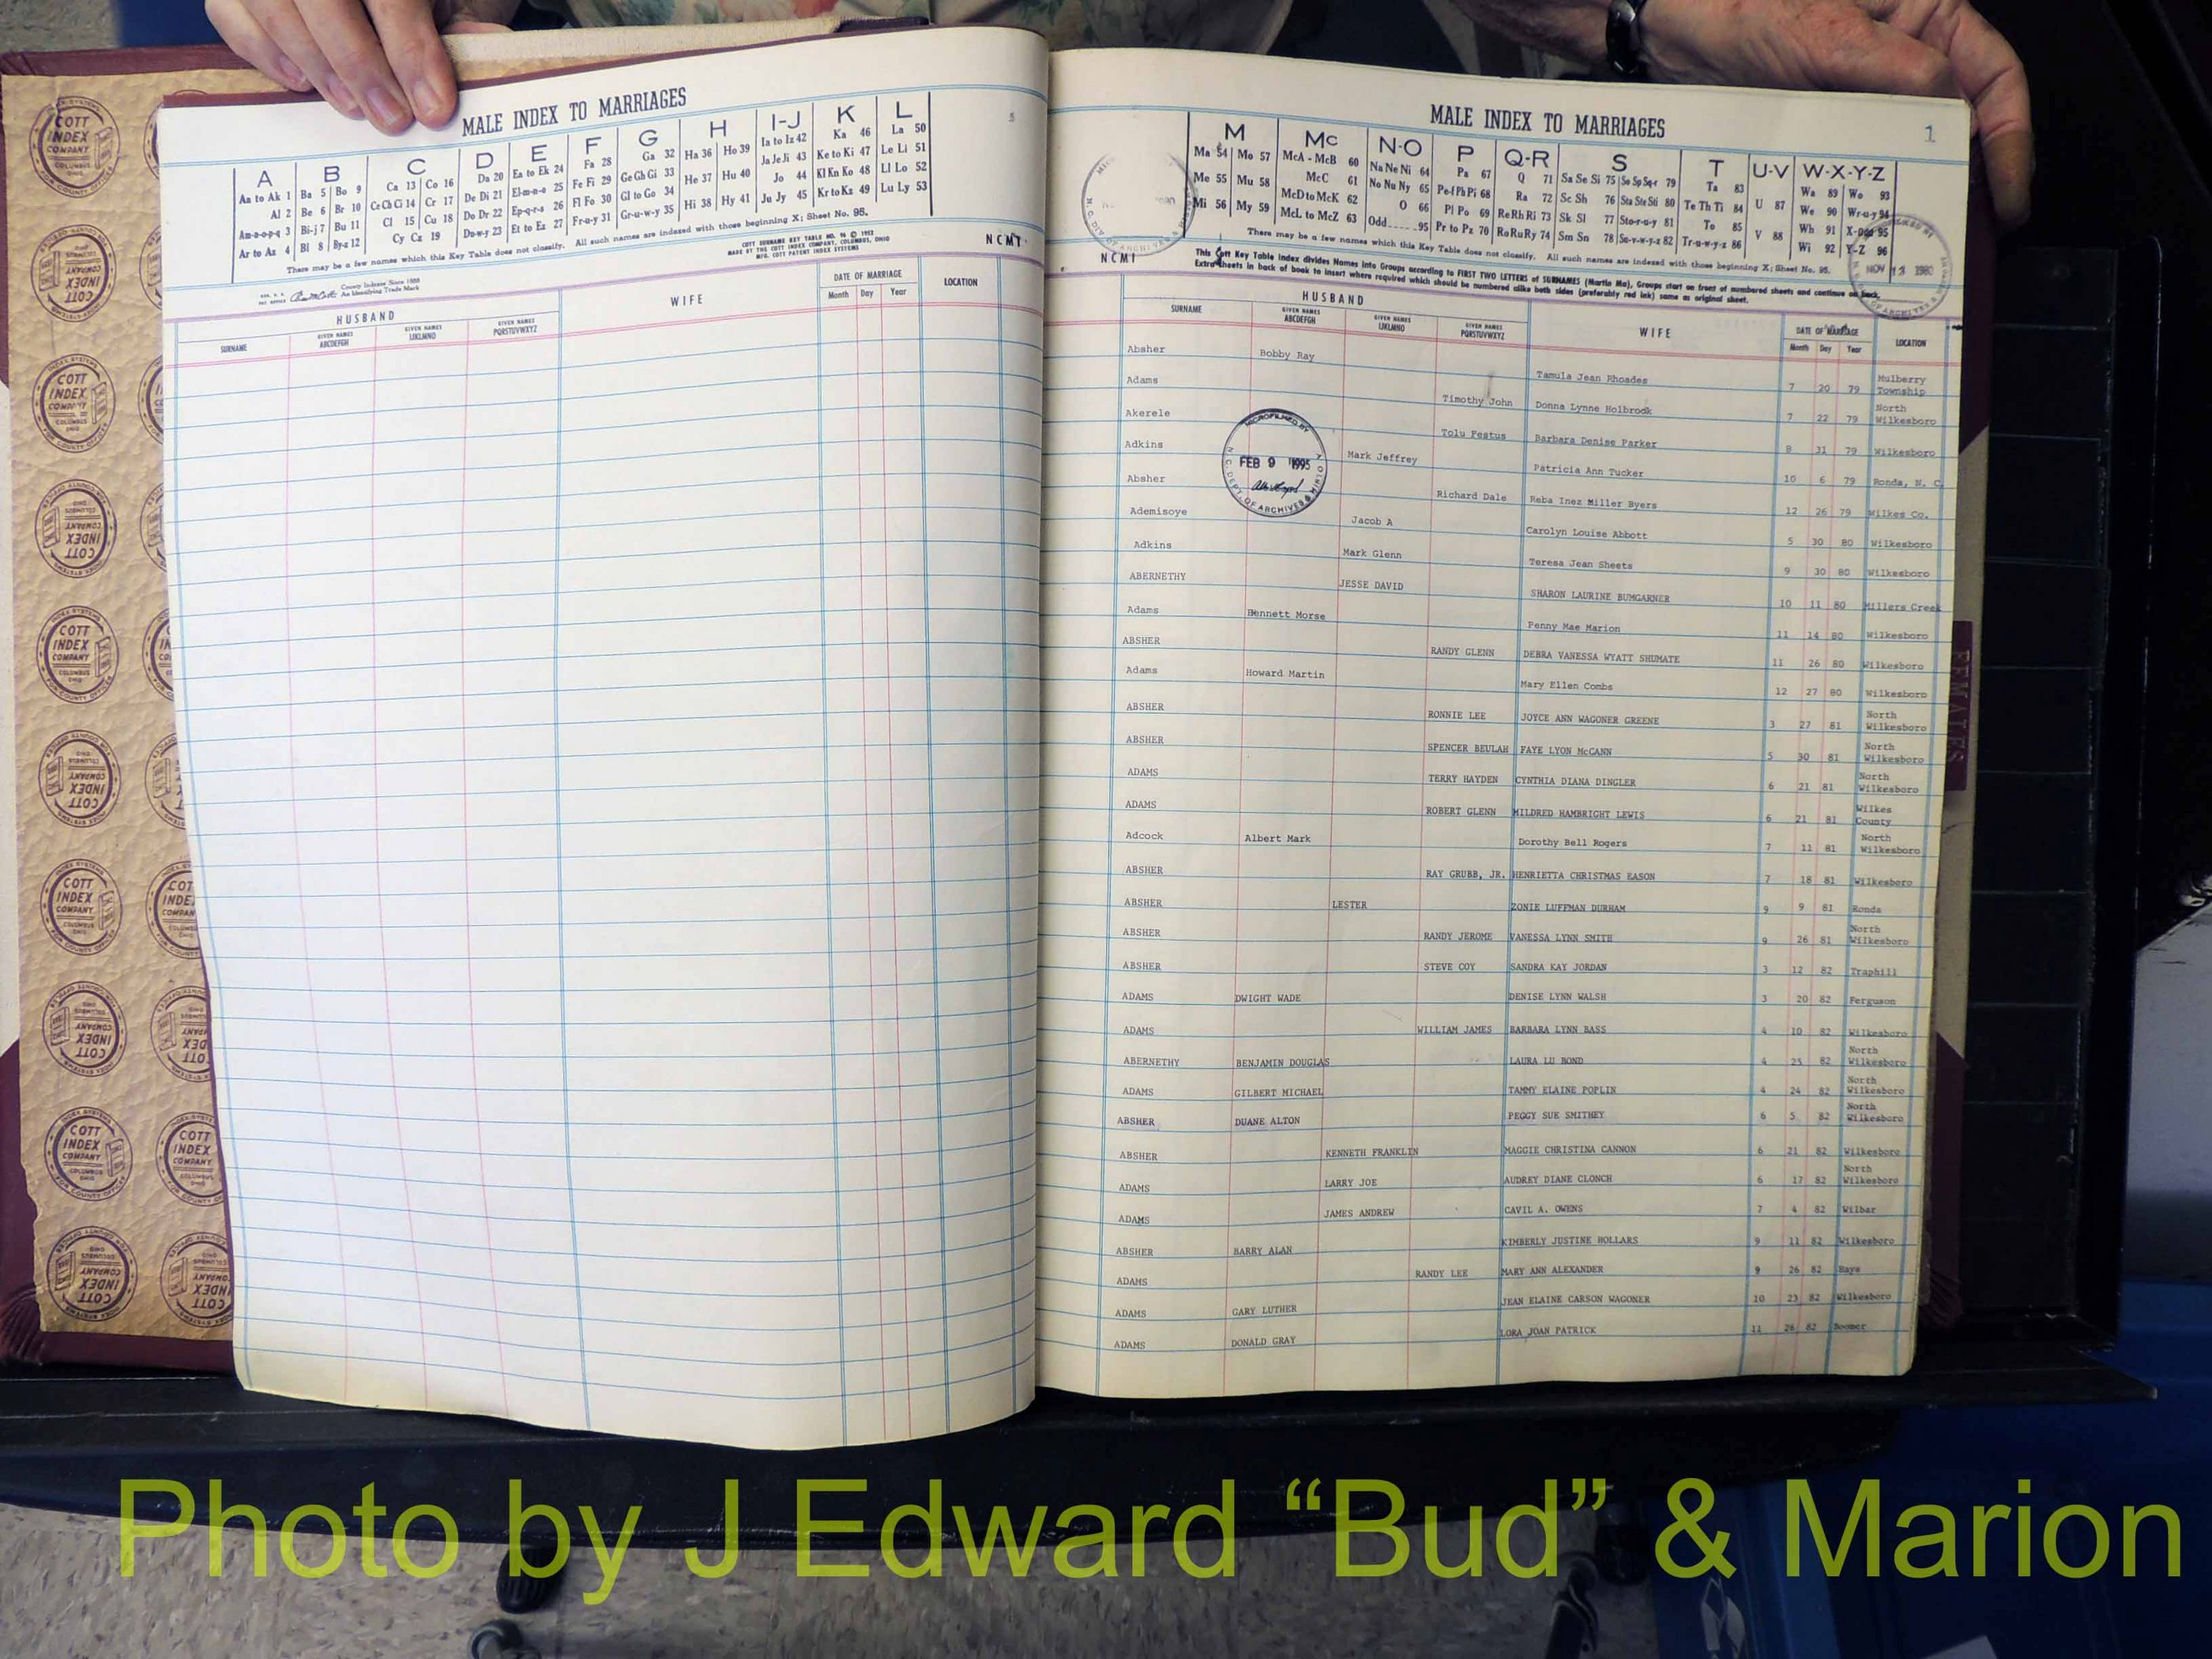 MALE INDEX TO MARRIAGES
A B C D E F G H I-J K L
Aa to Ak 1 Ba 5 Bo 9 Ca 13 Co 16 Da 20 Ea to Ek 24 Fa 28 Ga 32 Ha 36 Ho 39 Ia to Iz 42 Ka 46 La 50
Al 2 Be 6 Br 10 Ce Ch Ci 14 Cr 17 De Di 21 El-m-n-o 25 Fe Fi 29 Ge Gh Gi 33 He 37 Hu 40 Ja Je Ji 43 Ke to Ki 47 Le Li 51
Am-n-o-p-q 3 Bi-j 7 Bu 11 Cl 15 Cu 18 Do Dr 22 Ep-q-r-s 26 Fl Fo 30 Gl to Go 34 Hi 38 Hy 41 Jo 44 Kl Kn Ko 48 Ll Lo 52
Ar to Az 4 Bl 8 By-z 12 Cy Cz 19 Du-w-y 23 Et to Ez 27 Fr-u-y 31 Gr-u-w-y 35 Ju Jy 45 Kr to Kz 49 Lu Ly 53
There may be a few names which this Key Table does not classify. All such names are indexed with those beginning X; Sheet No. 95.
COTT SURNAME KEY TABLE NO. 96 © 1952
MADE BY THE COTT INDEX COMPANY, COLUMBUS, OHIO
MFG. COTT PATENT INDEX SYSTEMS
NCMI
County Indexes Since 1888
An Identifying Trade Mark
HUSBAND WIFE DATE OF MARRIAGE LOCATION
SURNAME GIVEN NAMES ABCDEFGH GIVEN NAMES IJKLMNO GIVEN NAMES PQRSTUVWXYZ Month Day Year
MALE INDEX TO MARRIAGES 1
M Mc N-O P Q-R S T U-V W-X-Y-Z
Ma 54 Mo 57 McA - McB 60 Na Ne Ni 64 Pa 67 Q 71 Sa Se Si 75 So Sp Sq-r 79 Ta 83 U 87 Wa 89 Wo 93
Me 55 Mu 58 McC 61 No Nu Ny 65 Pe-f Ph Pi 68 Ra 72 Sc Sh 76 Sta Ste Sti 80 Te Th Ti 84 We 90 Wr-u-y 94
Mi 56 My 59 McD to McK 62 O 66 Pl Po 69 Re Rh Ri 73 Sk Sl 77 Sto-r-u-y 81 To 85 V 88 Wh 91 X-Odd 95
McL to McZ 63 Odd 95 Pr to Pz 70 Ro Ru Ry 74 Sm Sn 78 Su-v-w-y-z 82 Tr-u-w-y-z 86 Wi 92 Y-Z 96
There may be a few names which this Key Table does not classify. All such names are indexed with those beginning X; Sheet No. 95.
NCMI
This Cott Key Table Index divides Names into Groups according to FIRST TWO LETTERS of SURNAMES (Martin Ma), Groups start on front of numbered sheets and continue on back.
Extra Sheets in back of book to insert where required which should be numbered alike both sides (preferably red ink) same as original sheet.
NOV 13 1980
HUSBAND WIFE DATE OF MARRIAGE LOCATION
SURNAME GIVEN NAMES ABCDEFGH GIVEN NAMES IJKLMNO GIVEN NAMES PQRSTUVWXYZ Month Day Year
Absher Bobby Ray Tamula Jean Rhoades 7 20 79 Mulberry Township
Adams Timothy John Donna Lynne Holbrook 7 22 79 North Wilkesboro
Akerele Tolu Festus Barbara Denise Parker 8 31 79 Wilkesboro
Adkins Mark Jeffrey Patricia Ann Tucker 10 6 79 Ronda, N. C.
Absher Richard Dale Reba Inez Miller Byers 12 26 79 Wilkes Co.
Ademisoye Jacob A Carolyn Louise Abbott 5 30 80 Wilkesboro
Adkins Mark Glenn Teresa Jean Sheets 9 30 80 Wilkesboro
ABERNETHY JESSE DAVID SHARON LAURINE BUMGARNER 10 11 80 Millers Creek
Adams Bennett Morse Penny Mae Marion 11 14 80 Wilkesboro
ABSHER RANDY GLENN DEBRA VANESSA WYATT SHUMATE 11 26 80 Wilkesboro
Adams Howard Martin Mary Ellen Combs 12 27 80 Wilkesboro
ABSHER RONNIE LEE JOYCE ANN WAGONER GREENE 3 27 81 North Wilkesboro
ABSHER SPENCER BEULAH FAYE LYON McCANN 5 30 81 North Wilkesboro
ADAMS TERRY HAYDEN CYNTHIA DIANA DINGLER 6 21 81 North Wilkesboro
ADAMS ROBERT GLENN MILDRED HAMBRIGHT LEWIS 6 21 81 Wilkes County
Adcock Albert Mark Dorothy Bell Rogers 7 11 81 North Wilkesboro
ABSHER RAY GRUBB, JR. HENRIETTA CHRISTMAS EASON 7 18 81 Wilkesboro
ABSHER LESTER ZONIE LUFFMAN DURHAM 9 9 81 Ronda
ABSHER RANDY JEROME VANESSA LYNN SMITH 9 26 81 North Wilkesboro
ABSHER STEVE COY SANDRA KAY JORDAN 3 12 82 Traphill
ADAMS DWIGHT WADE DENISE LYNN WALSH 3 20 82 Ferguson
ADAMS WILLIAM JAMES BARBARA LYNN BASS 4 10 82 Wilkesboro
ABERNETHY BENJAMIN DOUGLAS LAURA LU BOND 4 25 82 North Wilkesboro
ADAMS GILBERT MICHAEL TAMMY ELAINE POPLIN 4 24 82 North Wilkesboro
ABSHER DUANE ALTON PEGGY SUE SMITHEY 6 5 82 North Wilkesboro
ABSHER KENNETH FRANKLIN MAGGIE CHRISTINA CANNON 6 21 82 Wilkesboro
ADAMS LARRY JOE AUDREY DIANE CLONCH 6 17 82 North Wilkesboro
ADAMS JAMES ANDREW CAVIL A. OWENS 7 4 82 Wilbar
ABSHER BARRY ALAN KIMBERLY JUSTINE HOLLARS 9 11 82 Wilkesboro
ADAMS RANDY LEE MARY ANN ALEXANDER 9 26 82 Hays
ADAMS GARY LUTHER JEAN ELAINE CARSON WAGONER 10 23 82 Wilkesboro
ADAMS DONALD GRAY LORA JOAN PATRICK 11 26 82 Boomer
MICROFILMED BY
FEB 9 1995
N. C. DEPT. OF ARCHIVES &
COTT INDEX COMPANY COLUMBUS OHIO
FOR COUNTY OFFICES
INDEX SYSTEMS
FEMALES
Photo by J Edward “Bud” & Marion